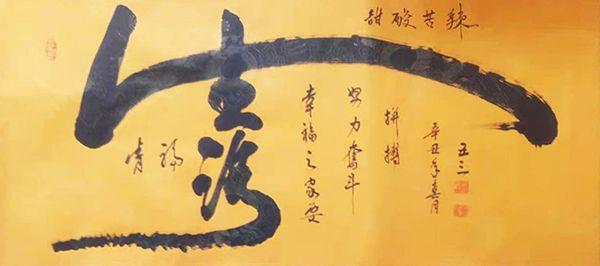 甜酸苦辣
人生
幸福之家要
努力奮斗
拼搏
辛丑年喜月
五三